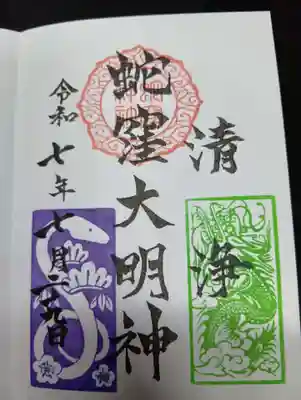 清浄
蛇窪大明神
令和七年七月二九日